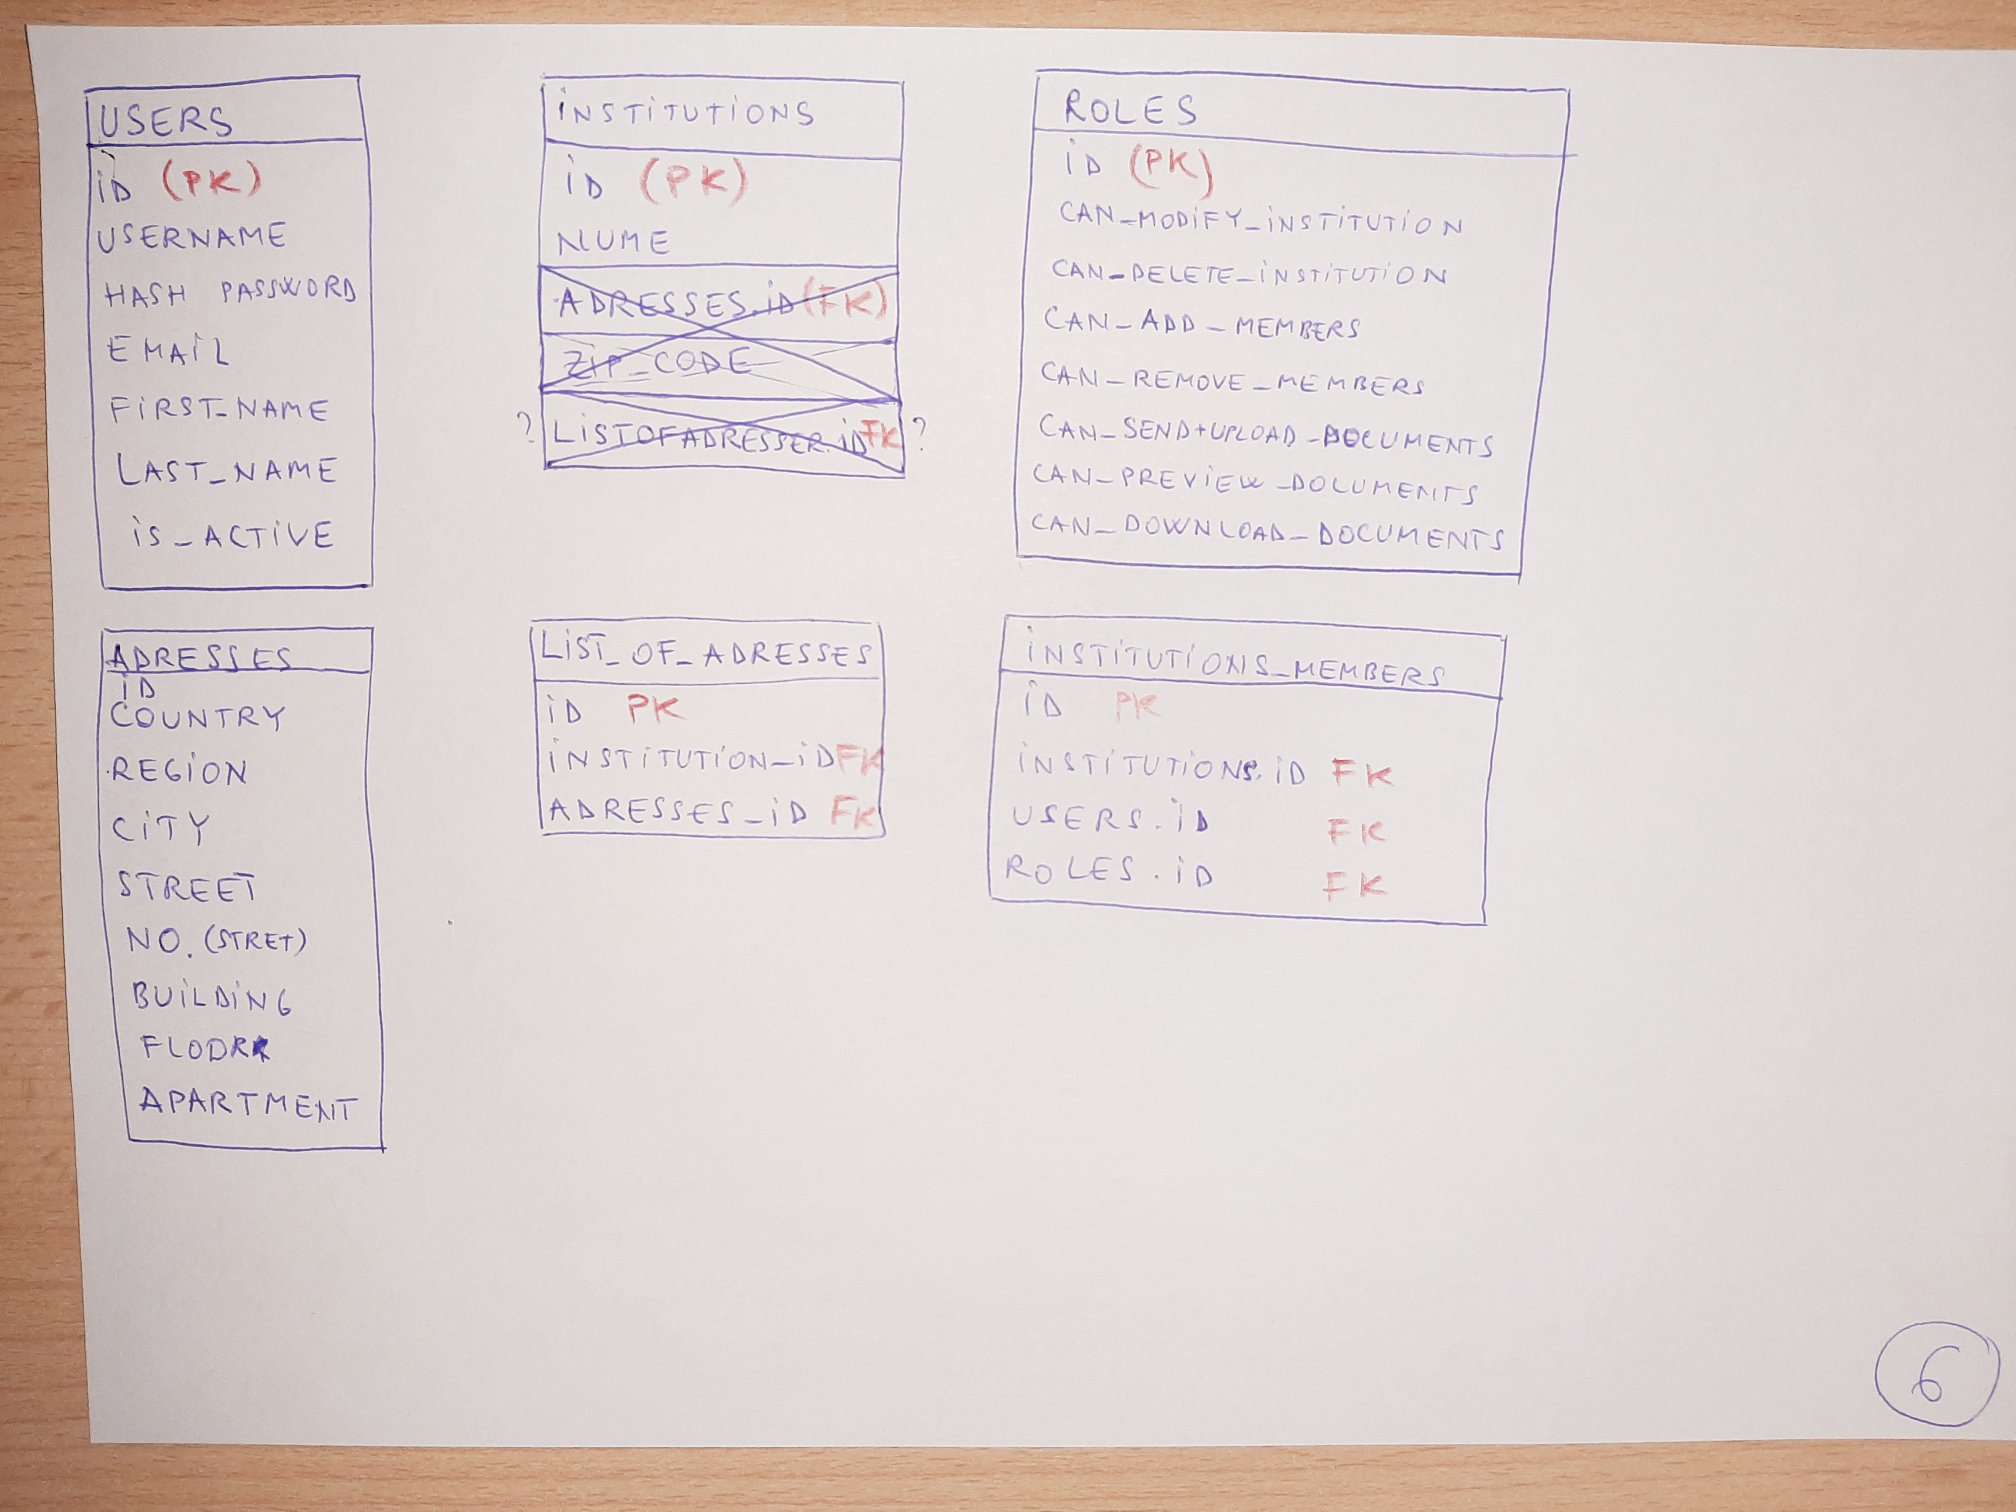 USERS
iD (PK)
USERNAME
HASH PASSWORD
EMAiL
FiRST_NAME
LAST_NAME
iS_ACTiVE
iNSTiTUTiONS
iD (PK)
NUME
ADRESSES.iD (FK)
ZiP_CODE
? LiSTOFADRESSER.iD FK ?
ROLES
iD (PK)
CAN_MODiFY_iNSTiTUTiON
CAN_DELETE_iNSTiTUTiON
CAN_ADD_MEMBERS
CAN_REMOVE_MEMBERS
CAN_SEND+UPLOAD_DOCUMENTS
CAN_PREViEW_DOCUMENTS
CAN_DOWNLOAD_DOCUMENTS
ADRESSES
iD
COUNTRY
REGiON
CiTY
STREET
NO. (STRET)
BUiLDiNG
FLOOR
APARTMENT
LiST_OF_ADRESSES
iD PK
iNSTiTUTiON_iD FK
ADRESSES_iD FK
iNSTiTUTiONS_MEMBERS
iD PK
iNSTiTUTiONS.iD FK
USERS.iD FK
ROLES.iD FK
6